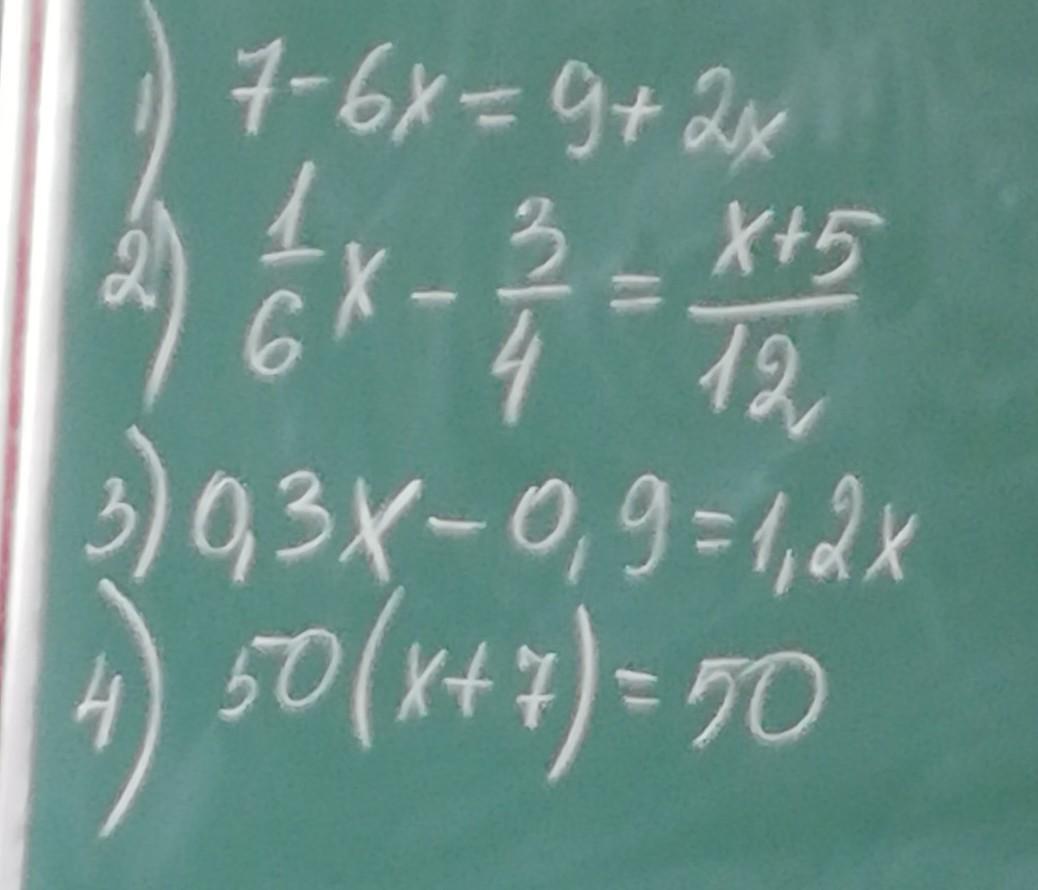 1) 7-6x=9+2x
2) 1/6 x - 3/4 = x+5/12
3) 0,3x-0,9=1,2x
4) 50(x+7)=50